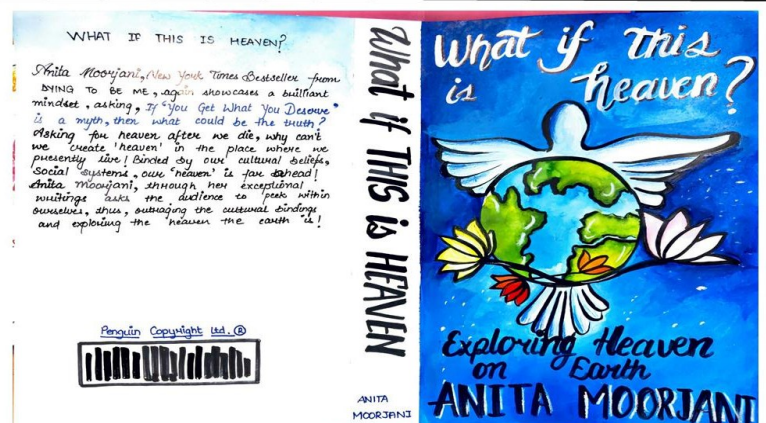 WHAT IF THIS IS HEAVEN?
Anita Moorjani, New York Times Bestseller from
DYING TO BE ME, again showcases a brilliant
mindset, asking, If "You Get What You Deserve"
is a myth, then what could be the truth?
Asking for heaven after we die, why can't
we create 'heaven' in the place where we
presently live! Binded by our cultural beliefs,
Social systems, our 'heaven' is far ahead!
Anita Moorjani, through her exceptional
writings asks the audience to peek within
ourselves, thus, outraging the cultural bindings
and exploring the heaven the earth is!
Penguin Copyright Ltd. ®
What if THIS is HEAVEN
ANITA
MOORJANI
What if this
is heaven?
Exploring Heaven
on Earth
ANITA MOORJANI